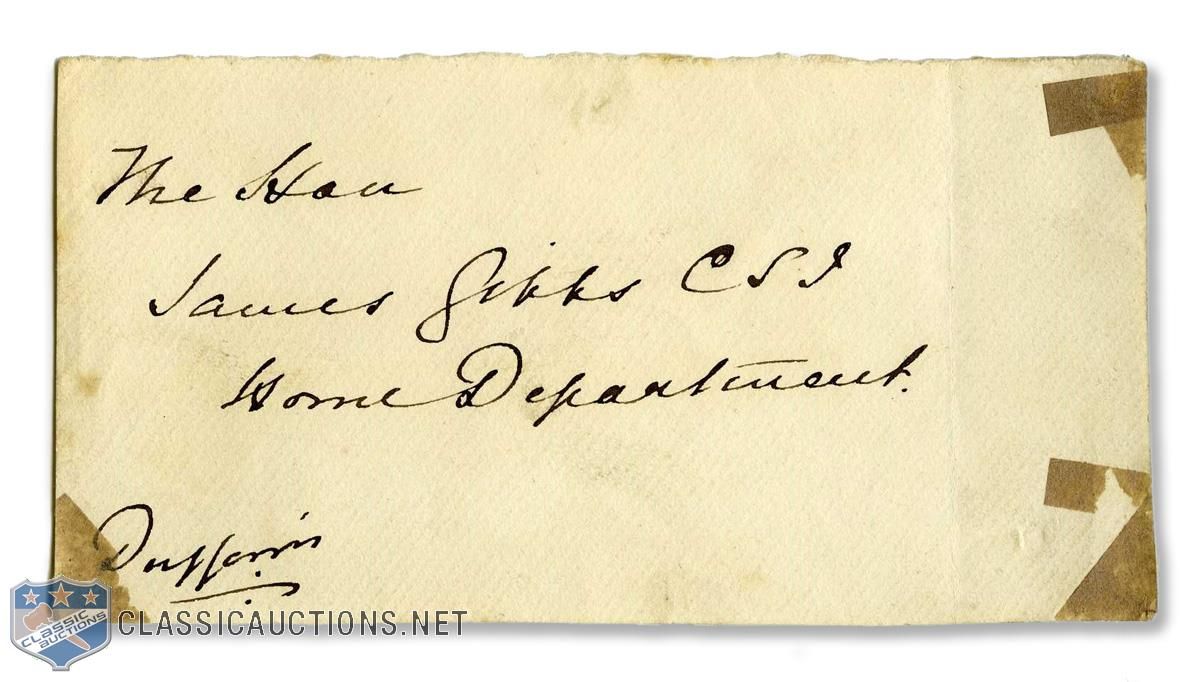 The Hon
James Gibbs CSI
Home Department.
Dufferin
CLASSIC AUCTIONS
CLASSICAUCTIONS.NET